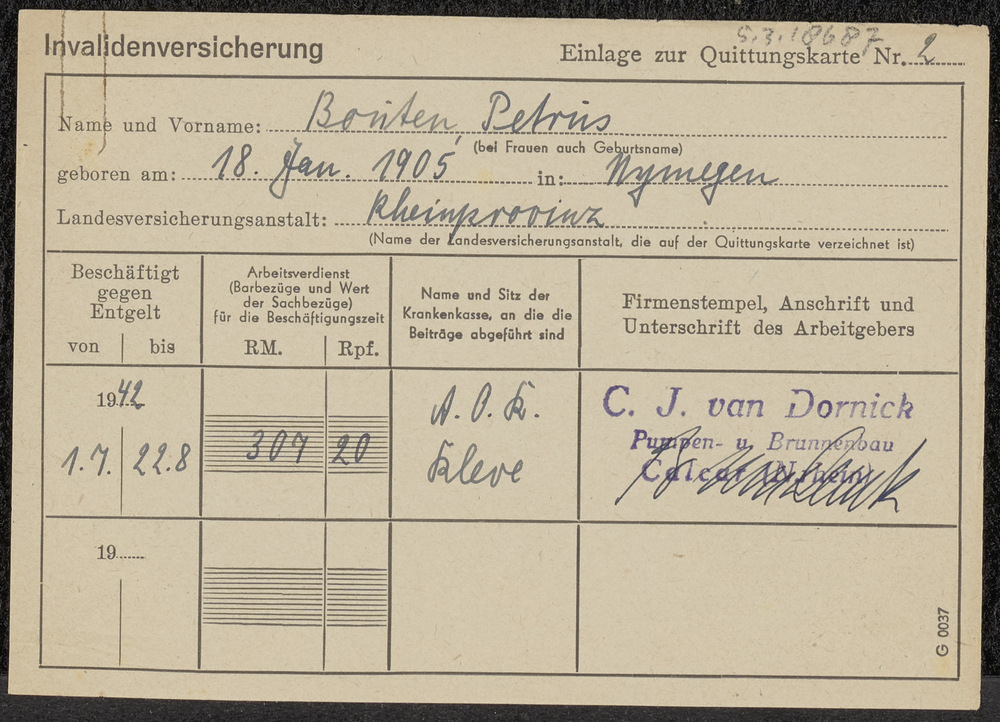 5.3.18687
Invalidenversicherung
Einlage zur Quittungskarte Nr. 2
Name und Vorname: Bouten, Petrus
(bei Frauen auch Geburtsname)
geboren am: 18. Jan. 1905 in: Nymegen
Landesversicherungsanstalt: Rheinprovinz
(Name der Landesversicherungsanstalt, die auf der Quittungskarte verzeichnet ist)
Beschäftigt
gegen
Entgelt
von bis
Arbeitsverdienst
(Barbezüge und Wert
der Sachbezüge)
für die Beschäftigungszeit
RM. Rpf.
Name und Sitz der
Krankenkasse, an die die
Beiträge abgeführt sind
Firmenstempel, Anschrift und
Unterschrift des Arbeitgebers
1942
1.7. 22.8
307 20
A. O. K.
Kleve
C. J. van Dornick
Pumpen- u. Brunnenbau
Calcar
19
G 0037